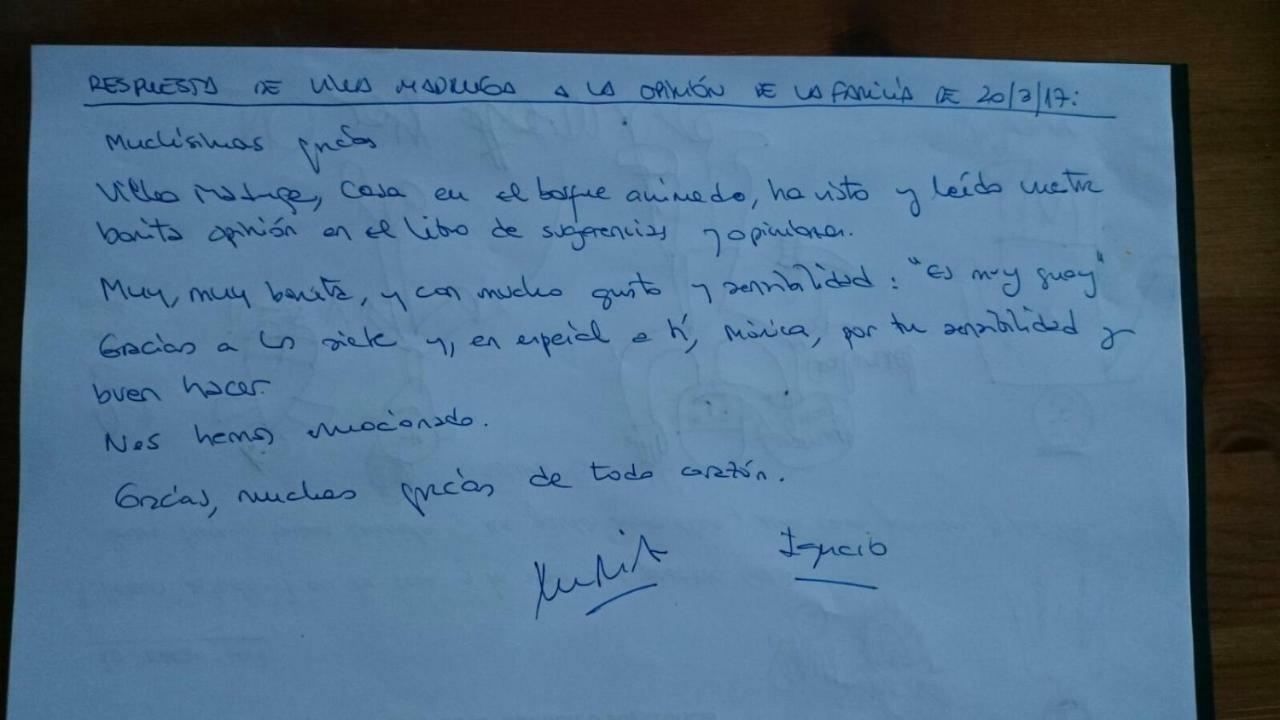 RESPUESTA DE VILLA MADRUGA A LA OPINIÓN DE LA FAMILIA DE 20/3/17:
Muchísimas gracias
Villa Madruga, Casa en el bosque animado, ha visto y leído vuestra
bonita opinión en el libro de sugerencias y opiniones.
Muy, muy bonita, y con mucho gusto y sensibilidad: "Es muy guay"
Gracias a los siete y, en especial a tí, Mónica, por tu sensibilidad y
buen hacer.
Nos hemos emocionado.
Gracias, muchas gracias de todo corazón.
Ignacio